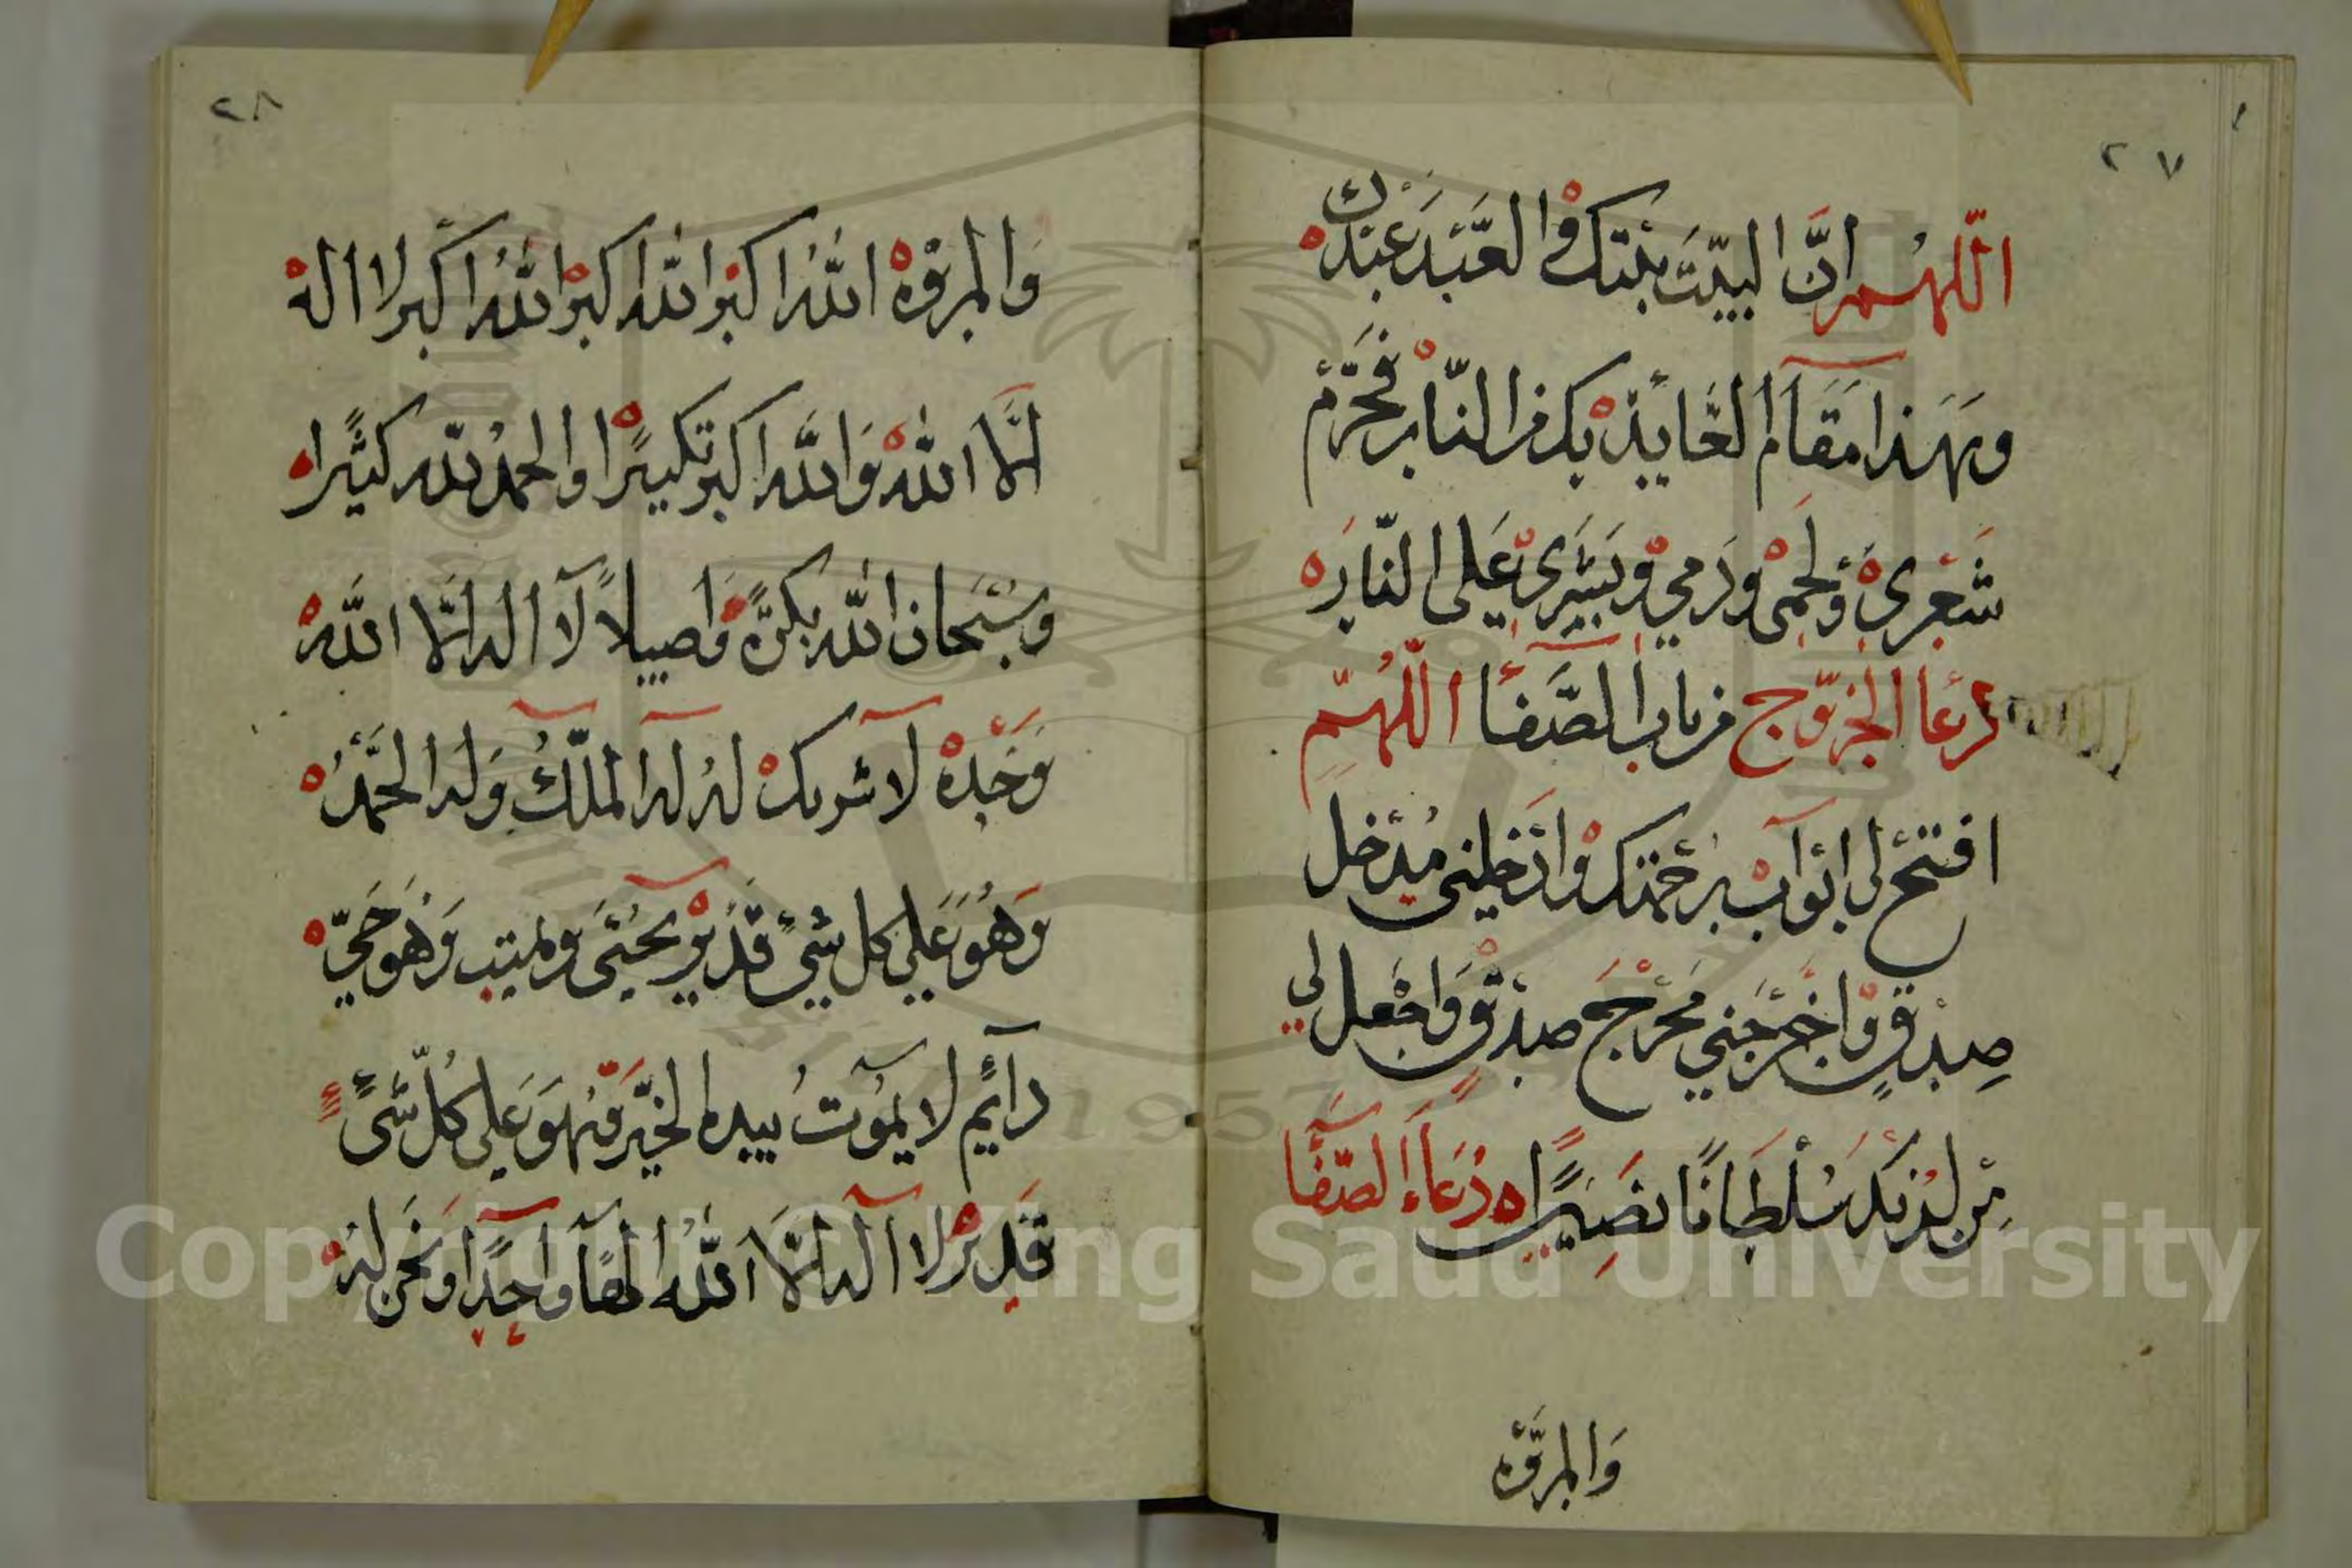 ٢٧
اللهم ان البيت بيتك والعبد عبدك
وهذا مقام العايذ بك من النار فحرم
شعري ولحمي ودمي وبشري على النار
دعا الخروج من باب الصفا اللهم
افتح لي ابواب رحمتك وادخلني مدخل
صدق واخرجني مخرج صدق واجعل لي
من لدنك سلطانا نصيرا دعاء الصفا
والمروة
٢٨
والمروة الله اكبر الله اكبر الله اكبر لا اله
الا الله والله اكبر تكبيرا والحمد لله كثيرا
وسبحان الله بكرة واصيلا لا اله الا الله
وحده لا شريك له له الملك وله الحمد
وهو على كل شيء قدير يحيي ويميت وهو حي
دائم لا يموت بيده الخير وهو على كل شيء
قدير لا اله الا الله الها واحدا ونحن له
Copyright © King Saud University
1957